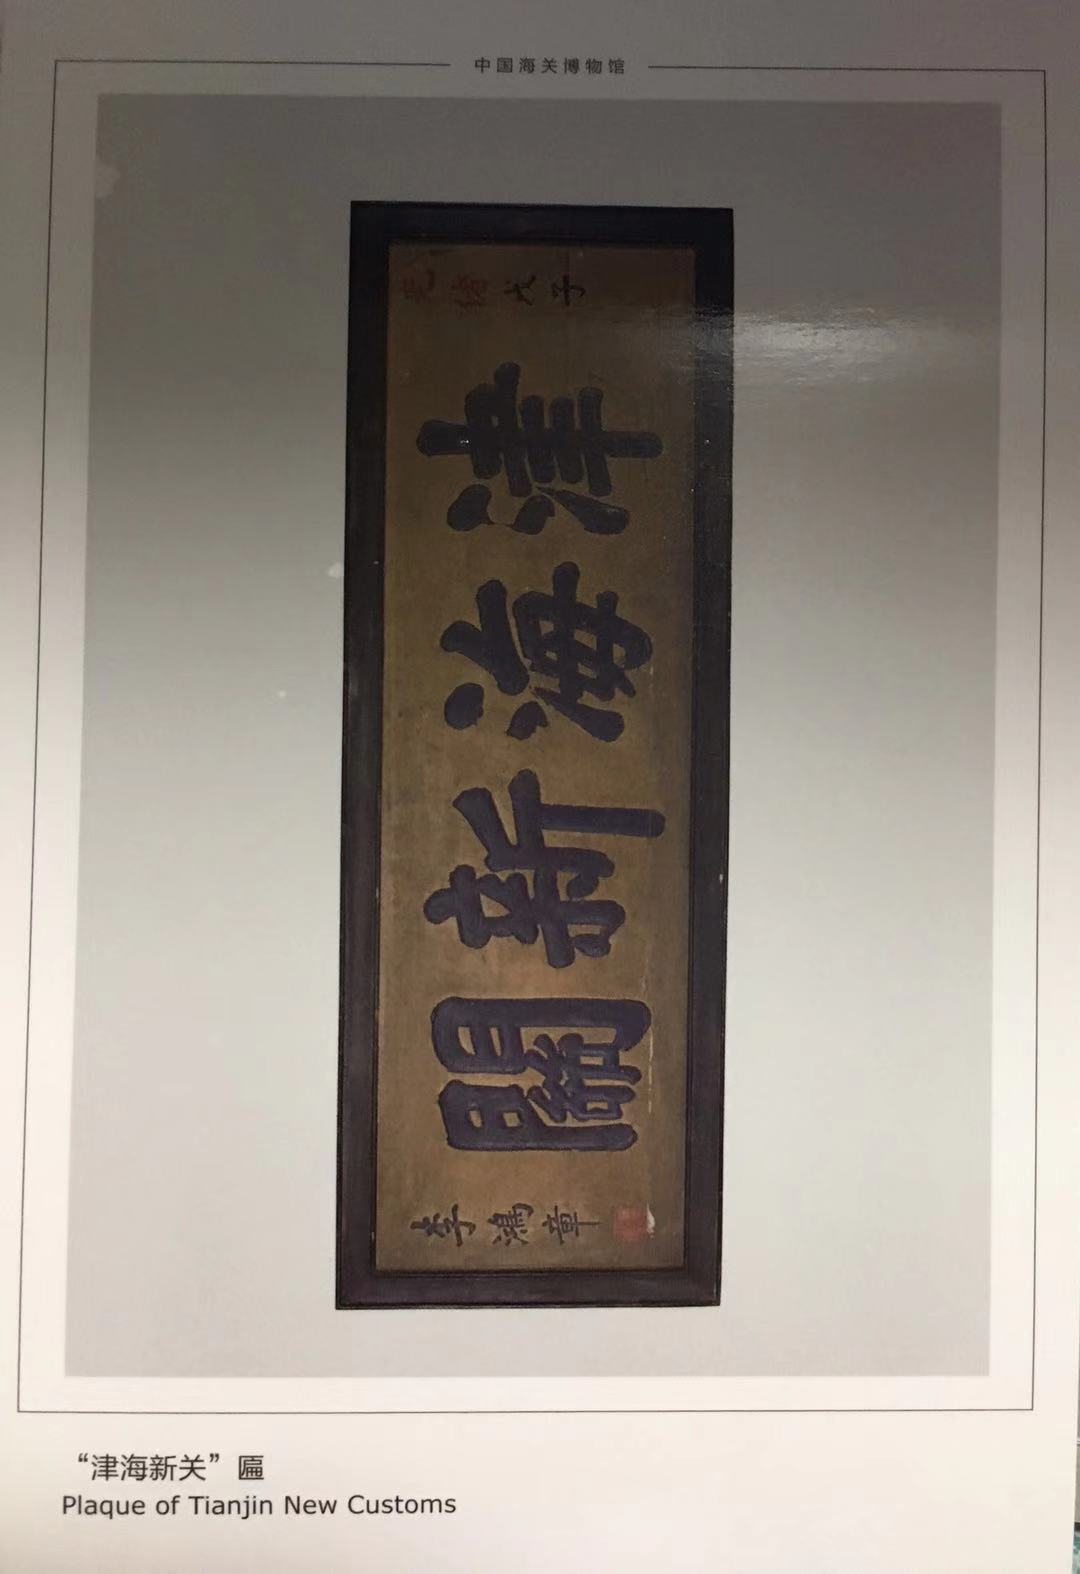 中国海关博物馆
光緒戊子
津海新關
李鴻章
“津海新关”匾
Plaque of Tianjin New Customs